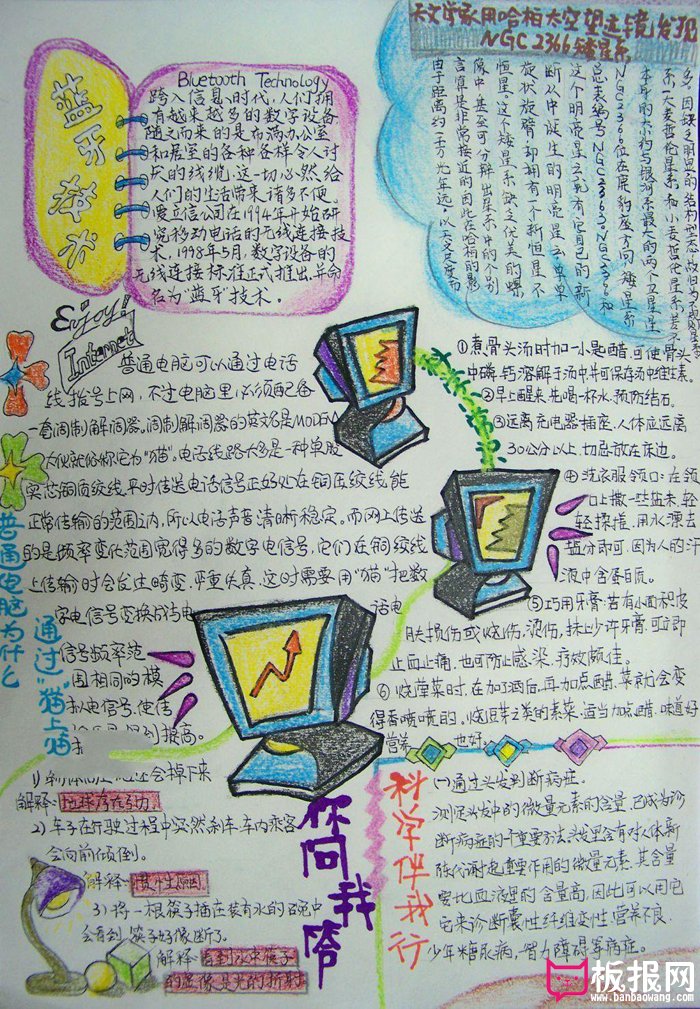 蓝牙技术
Bluetooth Technology
跨入信息时代,人们拥
有越来越多的数字设备
随之而来的是布满办公室
和居室的各种各样令人讨
厌的线缆,这一切必然给
人们的生活带来诸多不便。
爱立信公司在1994年开始研
究移动电话的无线连接技
术,1998年5月,数字设备的
无线连接标准正式推出,并命
名为"蓝牙"技术。
天文学家用哈柏太空望远镜发现
NGC2366矮星系
由于距离约一千万光年远,以天文尺度而
言算是非常接近的因此在哈柏的影
像中,甚至可分辨出星系中的个别
恒星。这个矮星系缺乏优美的螺
旋状旋臂,却拥有一个新恒星不
断从中诞生的明亮星云
Enjoy!
Internet
普通电脑为什么
通过"猫"上
普通电脑可以通过电话
线拨号上网,不过电脑里必须配备
一套调制解调器。调制解调器的英文名是MODEM
大伙就俗称它为"猫"。电话线路大多是一种单股
实芯铜质绞线,平时传送电话信号正好处在铜压绞线能
正常传输的范围之内,所以电话声音清晰稳定。而网上传送
的是频率变化范围宽得多的数字电信号,它们在铜绞线
上传输时会发生畸变,严重失真,这时需要用"猫"把数
字电信号变换成与电话电
信号频率范
围相同的模
拟电信号,使传
提高。
①煮骨头汤时加一小匙醋,可使骨头
中磷、钙溶解于汤中,并可保存汤中维生素。
②早上醒来,先喝一杯水,预防结石。
③远离充电器插座,人体应远离
30公分以上,切忌放在床边。
④洗衣服领口:在领
口上撒一些盐末,轻
轻揉搓,用水漂去
盐分即可,因为人的汗
液中含蛋白质。
⑤巧用牙膏:若有小面积皮
肤损伤或烧伤、烫伤,抹上少许牙膏,可立即
止血止痛,也可防止感染,疗效颇佳。
⑥烧荤菜时,在加了酒后,再加点醋,菜就会变
得香喷喷的,烧豆芽之类的素菜,适当加点醋,味道好
营养也好。
你问我答
会掉下来
解释:地球存在引力。
2)车子在行驶过程中突然刹车,车内乘客
会向前倾倒。
解释:惯性原因。
3)将一根筷子插在装有水的碗中
会看到筷子好像断了。
解释:看到水中筷子
的虚像是光的折射。
科学伴我行
(一)通过头发判断病症。
测定头发中的微量元素的含量,已成为诊
断病症的一个重要方法。头发里含有对人体新
陈代谢起重要作用的微量元素,其含量
要比血液里的含量高,因此可以用它
它来诊断囊性纤维变性、营养不良、
少年糖尿病,智力障碍等病症。
板报网
www.banbaowang.com